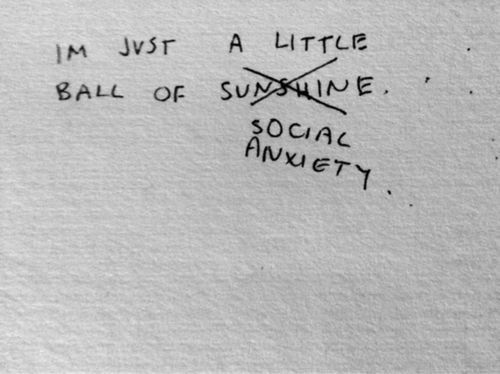 IM JUST A LITTLE
BALL OF SUNSHINE.
SOCIAL
ANXIETY.